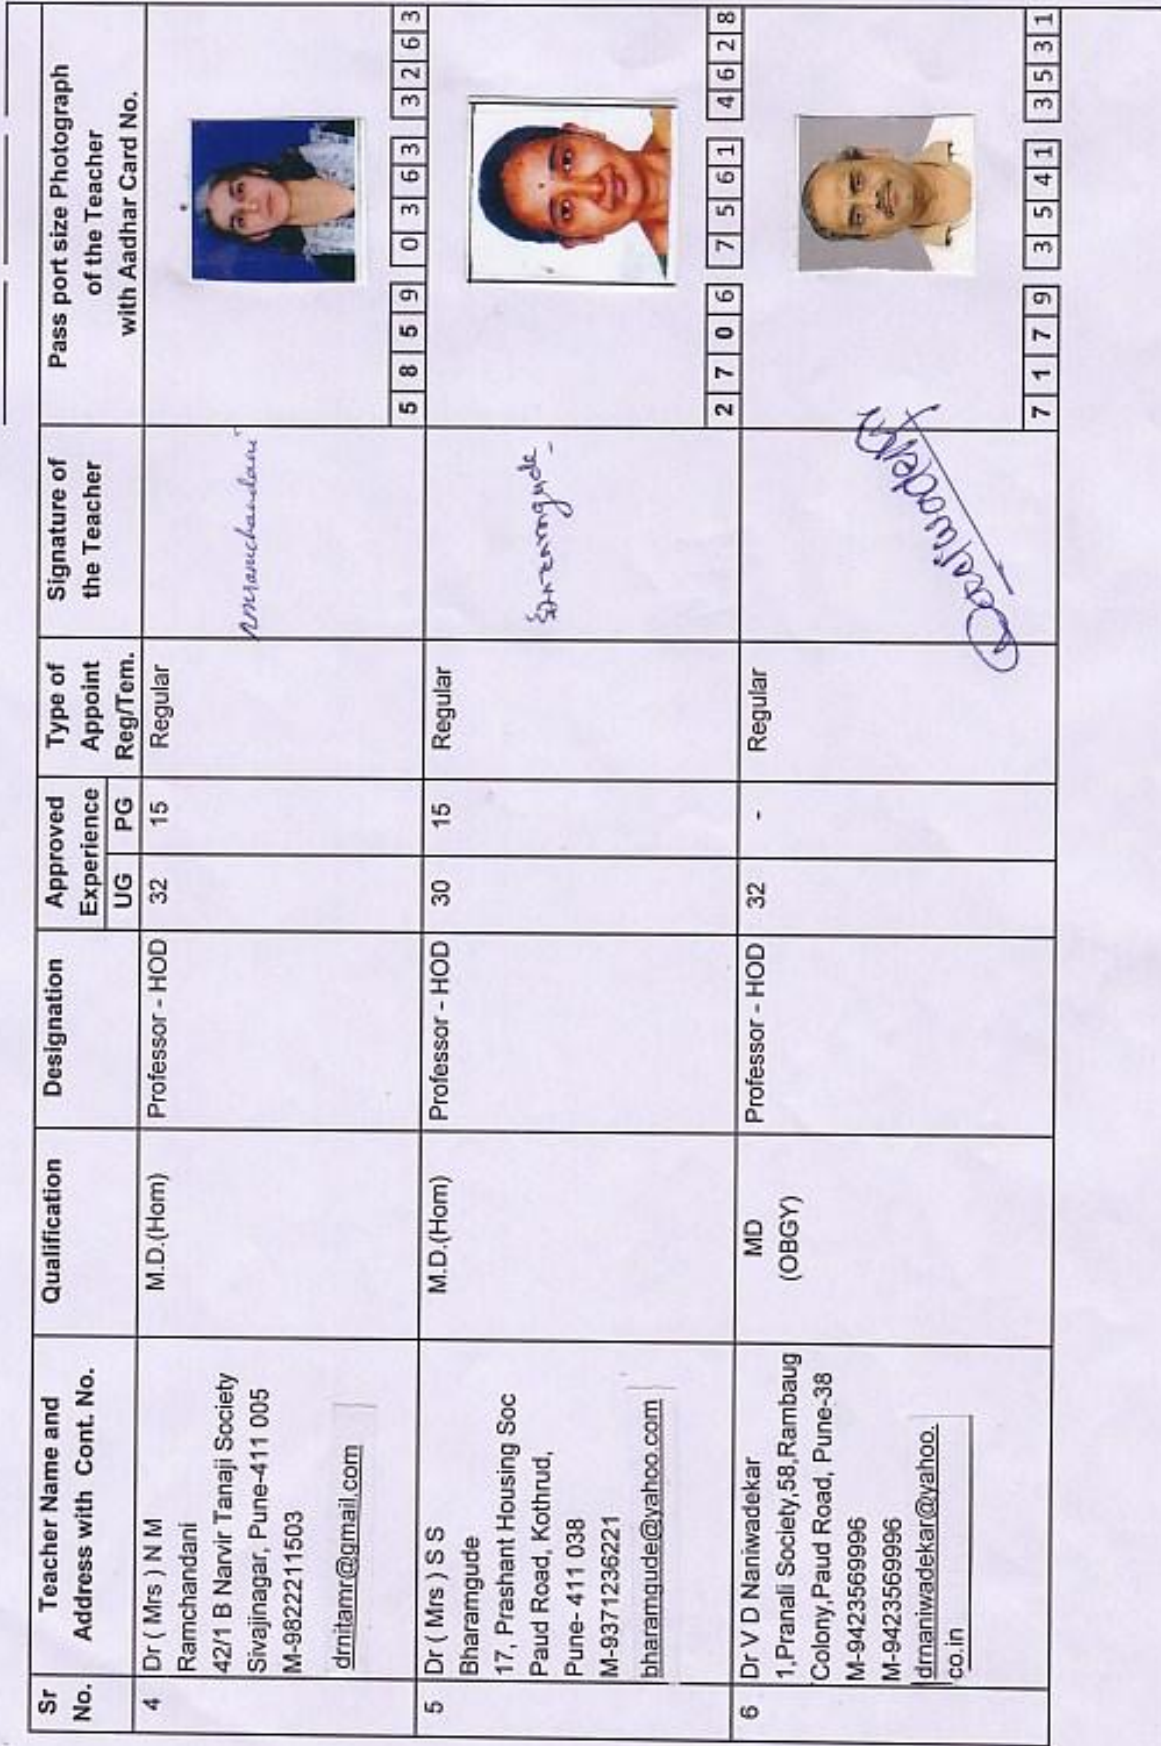 Sr No.
Teacher Name and Address with Cont. No.
Qualification
Designation
Approved Experience
UG PG
Type of Appoint Reg/Tem.
Signature of the Teacher
Pass port size Photograph of the Teacher with Aadhar Card No.
4
Dr ( Mrs ) N M
Ramchandani
42/1 B Narvir Tanaji Society
Sivajinagar, Pune-411 005
M-9822211503
drnitamr@gmail.com
M.D.(Hom)
Professor - HOD
32
15
Regular
nmramchandani
5 8 5 9 0 3 6 3 3 2 6 3
5
Dr ( Mrs ) S S
Bharamgude
17, Prashant Housing Soc
Paud Road, Kothrud,
Pune- 411 038
M-9371236221
bharamgude@yahoo.com
M.D.(Hom)
Professor - HOD
30
15
Regular
2 7 0 6 7 5 6 1 4 6 2 8
6
Dr V D Naniwadekar
1,Pranali Society,58,Rambaug
Colony,Paud Road, Pune-38
M-9423569996
M-9423569996
drnaniwadekar@yahoo.
co.in
MD
(OBGY)
Professor - HOD
32
-
Regular
7 1 7 9 3 5 4 1 3 5 3 1